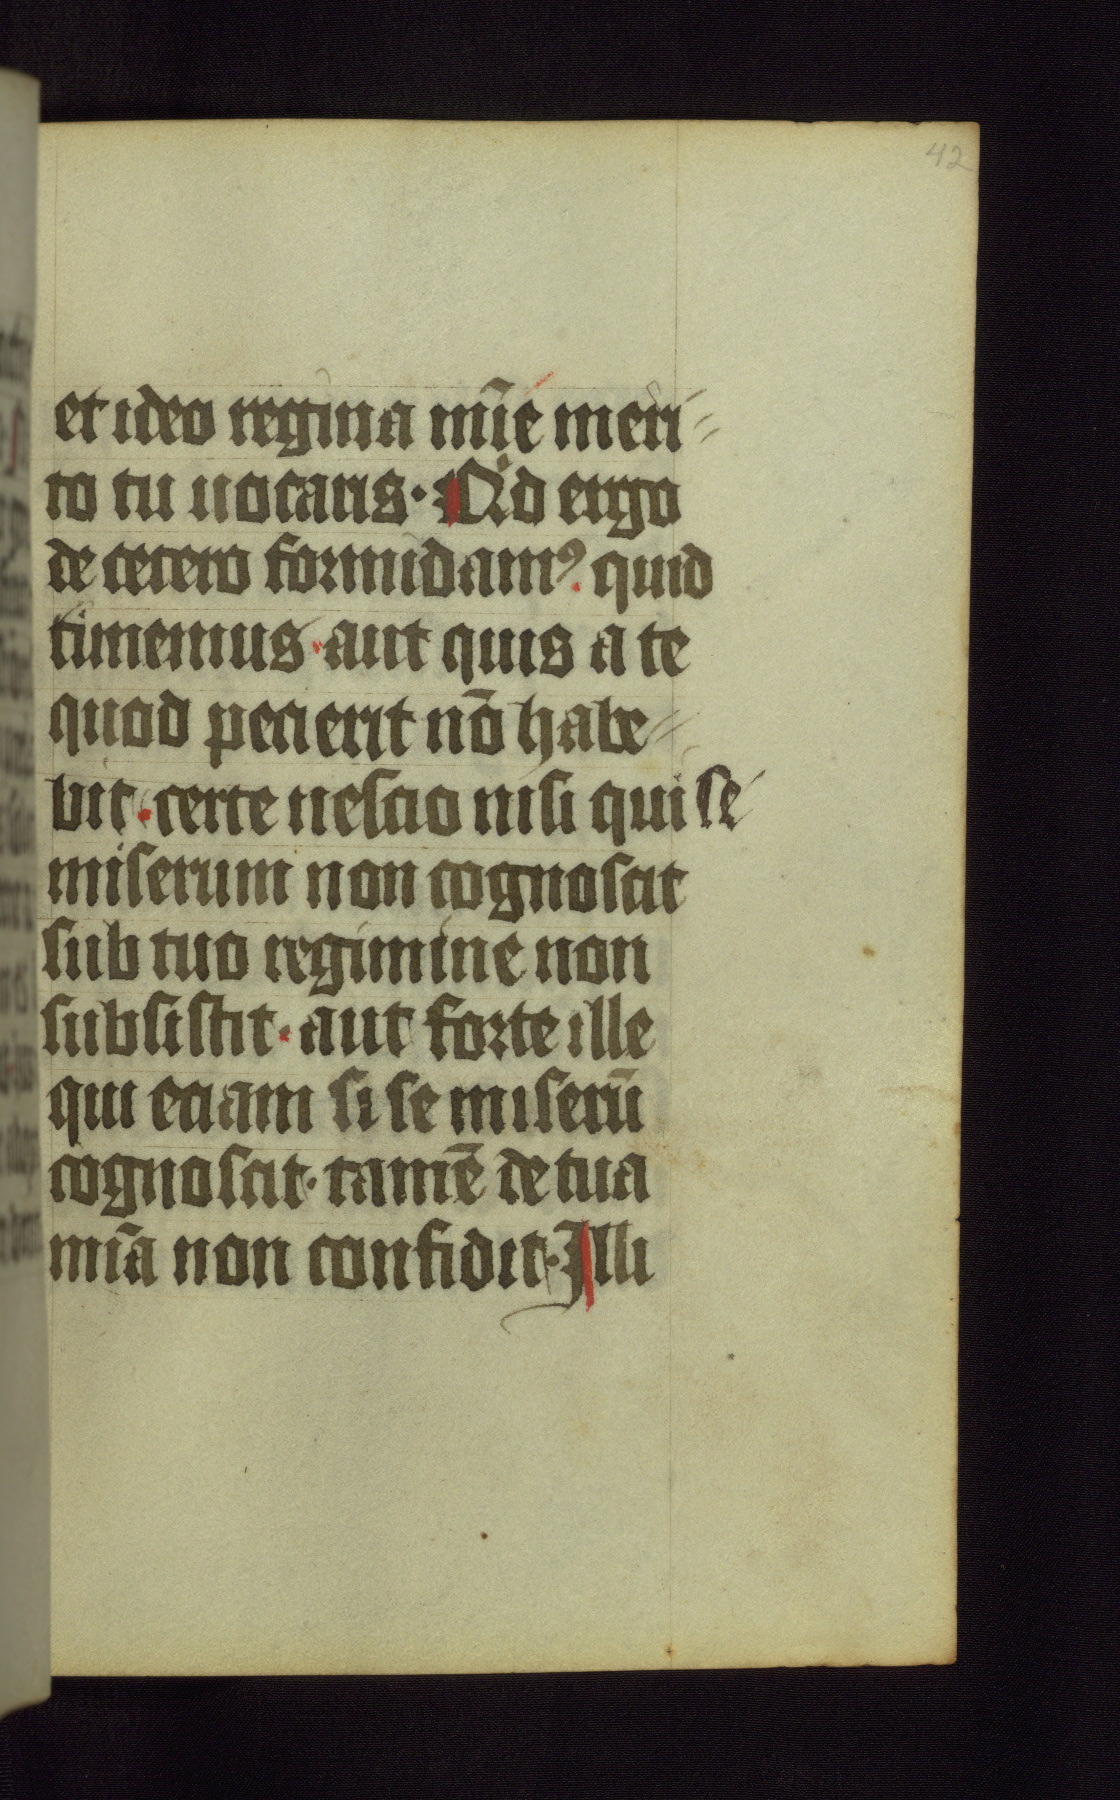 42
et ideo regina mīe meri-
to tu uocaris· Qͥd ergo
de cetero formidamꝰ. quid
timemus· aut quis a te
quod pecierit nō habe-
bit· certe nescio nisi qui se
miserum non cognoscit
sub tuo regimine non
subsistit· aut forte ille
qui eciam si se miserū
cognoscit· tamē de tua
mīa non confidit· Illi